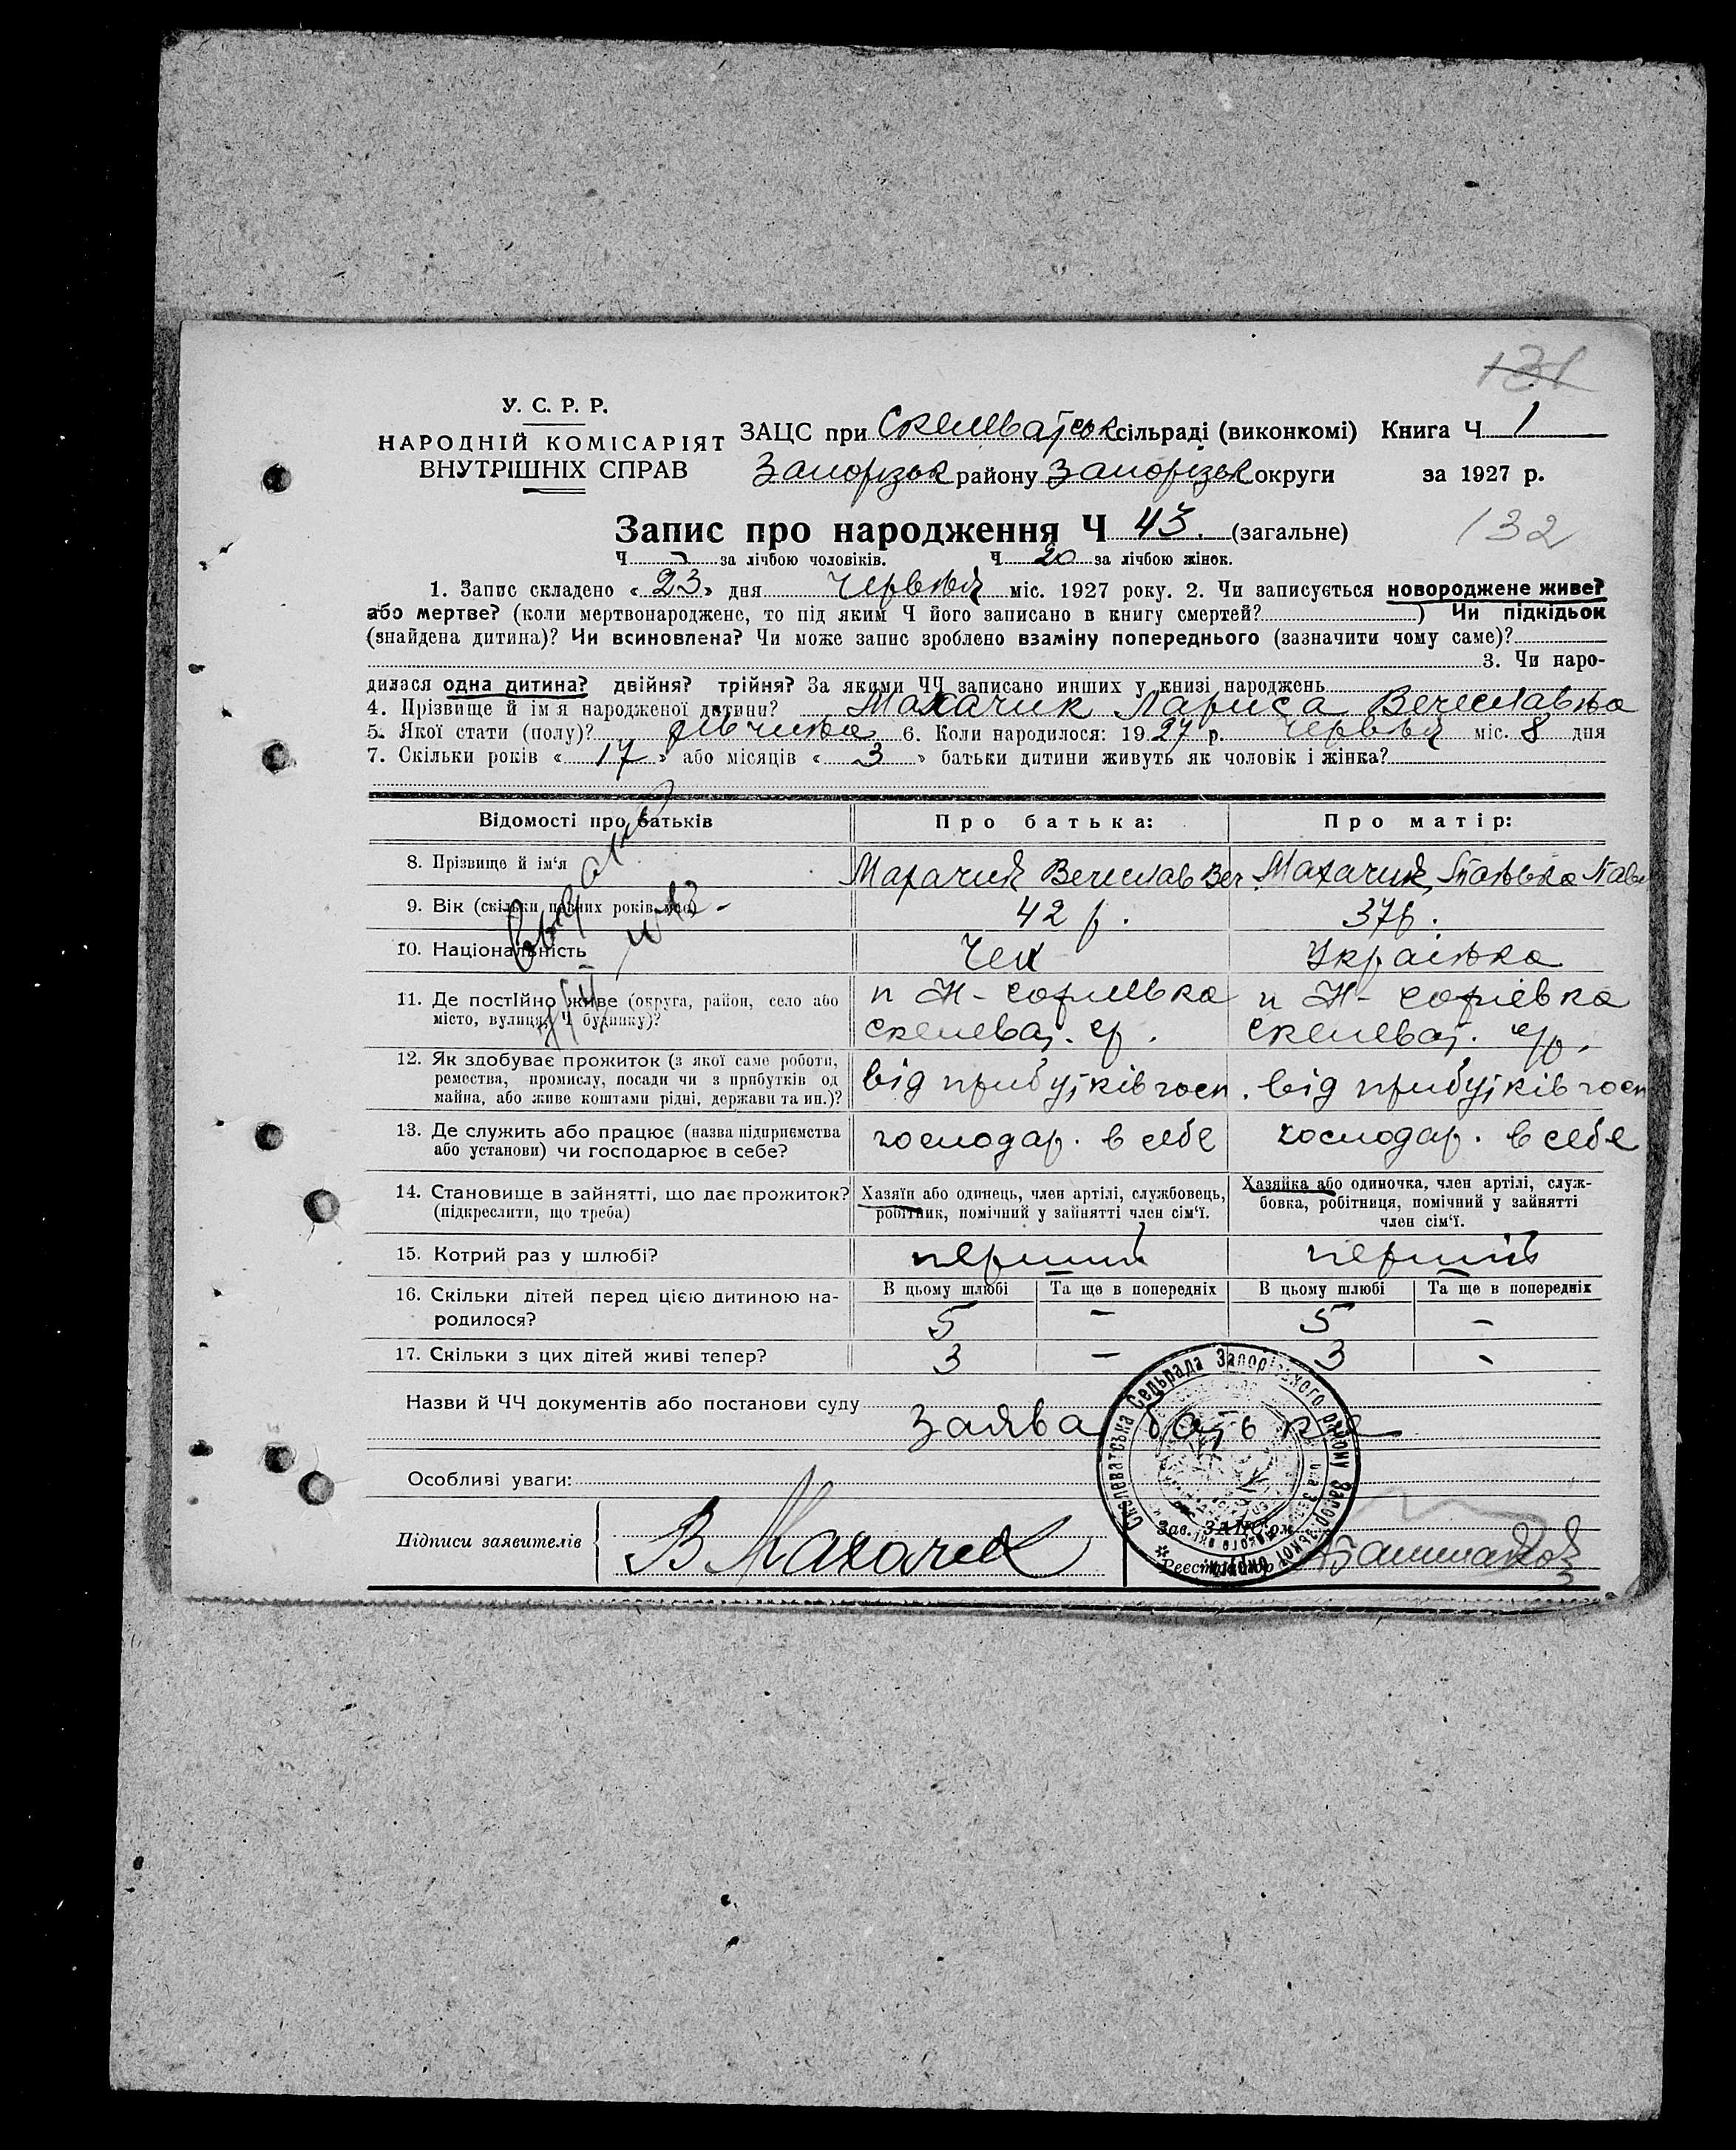 131
У. С. Р. Р.
НАРОДНІЙ КОМІСАРІЯТ
ВНУТРІШНІХ СПРАВ
ЗАЦС при Скелеватськ сільраді (виконкомі) Книга Ч 1
Запорізьк району Запорізьк округи за 1927 р.
Запис про народження Ч 43. (загальне)
132
Ч за лічбою чоловіків. Ч 20 за лічбою жінок.
1. Запис складено « 23 » дня Червня міс. 1927 року. 2. Чи записується новороджене живе?
або мертве? (коли мертвонароджене, то під яким Ч його записано в книгу смертей? ) Чи підкідьок
(знайдена дитина)? Чи всиновлена? Чи може запис зроблено взаміну попереднього (зазначити чому саме)?
3. Чи наро-
дилася одна дитина? двійня? трійня? За якими ЧЧ записано инших у книзі народжень
4. Прізвище й ім'я народженої дитини? Махачик Лариса Вечеславна
5. Якої стати (полу)? дівчина 6. Коли народилося: 1927 р. Червня міс. 8 дня
7. Скільки років « 17 » або місяців « 3 » батьки дитини живуть як чоловік і жінка?
Відомості про батьків Про батька: Про матір:
8. Прізвище й ім'я Махачик Вечеслав Веч. Махачик
9. Вік (скільки повних років має) 42 р. 37 р.
10. Національність Чех Українка
11. Де постійно живе (округа, район, село або п Н- софіївка п Н- софіевка
місто, вулиця, Ч будинку)? скелеват. ср. скелеват. с/р.
12. Як здобуває прожиток (з якої саме роботи,
ремества, промислу, посади чи з прибутків од від прибутків госп. від прибутків госп
майна, або живе коштами рідні, держави та ин.)?
13. Де служить або працює (назва підприємства господар. в себе господар. в себе
або установи) чи господарює в себе?
14. Становище в зайнятті, що дає прожиток? Хазяїн або одинець, член артілі, службовець, Хазяйка або одиночка, член артілі, служ-
(підкреслити, що треба) робітник, помічний у зайнятті член сім'ї. бовка, робітниця, помічний у зайнятті
член сім'ї.
15. Котрий раз у шлюбі? перший перший
16. Скільки дітей перед цією дитиною на- В цьому шлюбі Та ще в попередніх В цьому шлюбі Та ще в попередніх
родилося? 5 – 5 –
17. Скільки з цих дітей живі тепер? 3 – 3 -
Назви й ЧЧ документів або постанови суду
Заява батька
Особливі уваги:
Скелеватська Сельрада Запорізького району Запорізької округи
Зав. ЗАЦС'ом
Підписи заявителів В Махачек
Реєстратор